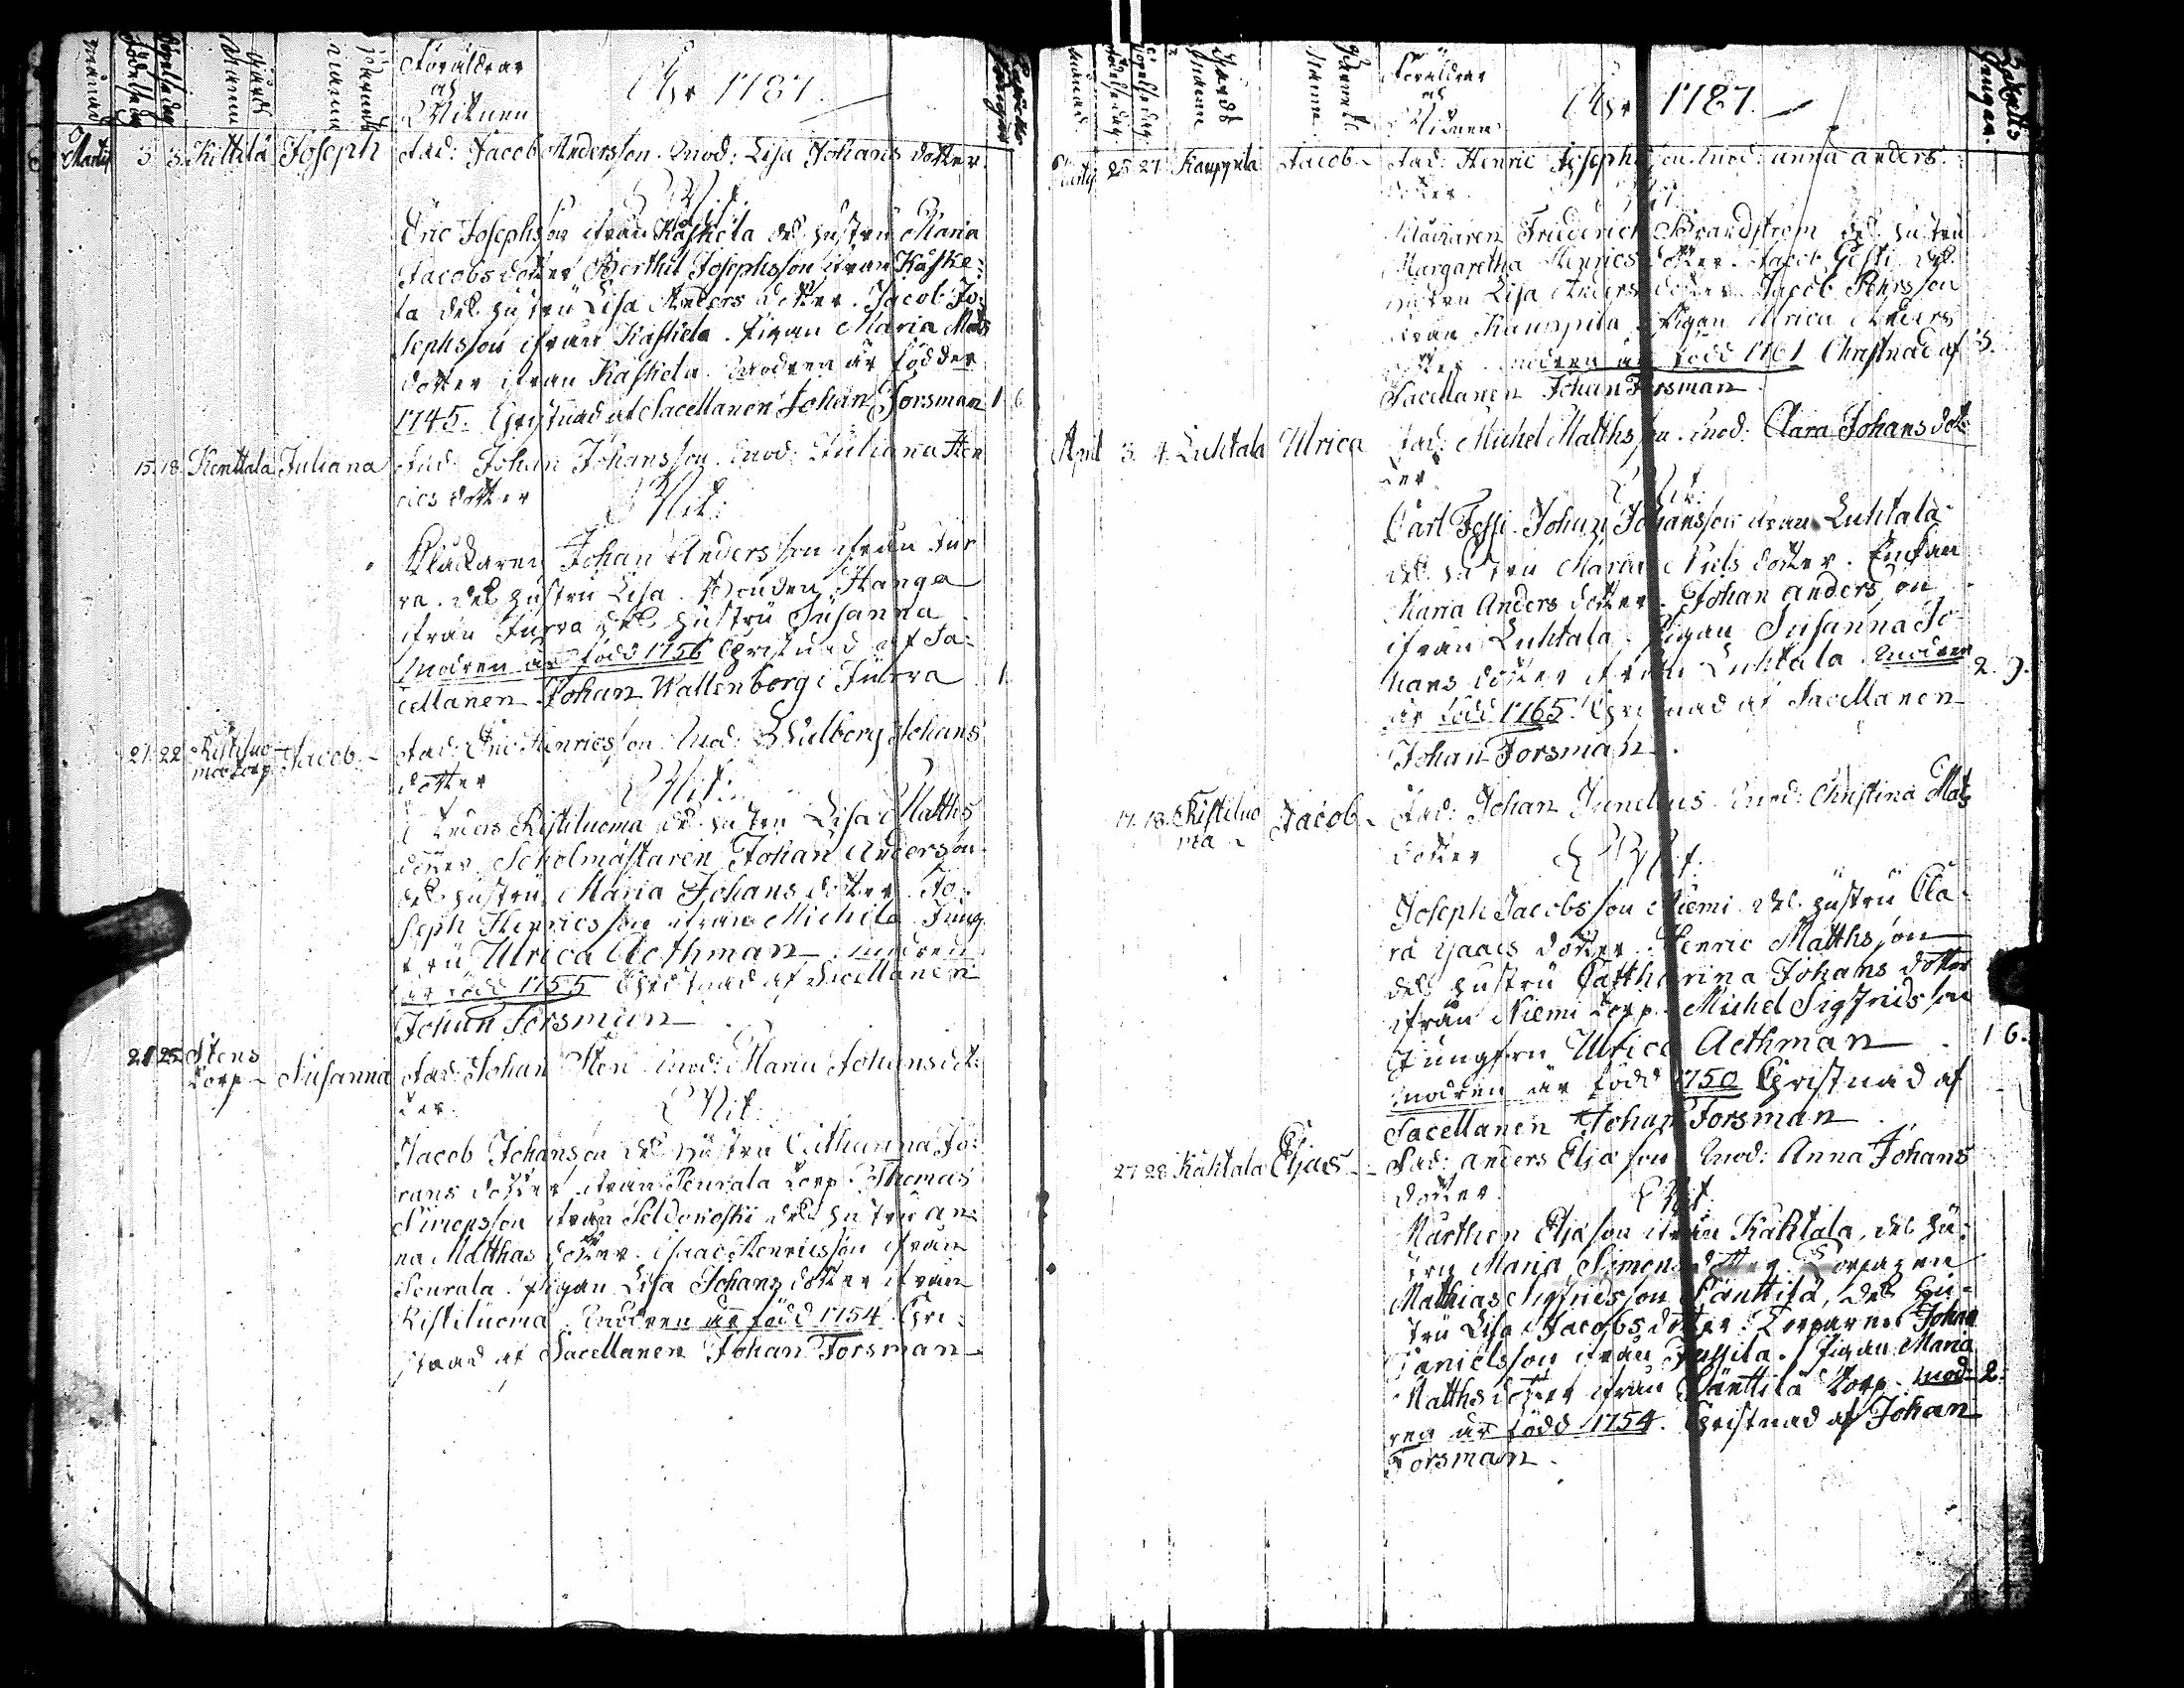 Månad
Födelse dag
Döpelse dag
Gårds Namn
Barnets namn
Föräldrar och Witnen
Åhr 1787.
Martii 3. 3. Kittilä Joseph Fad: Jacob Andersson. Mod: Lisa Johans dotter.
Wit:
Eric Josephsson ifrån Kaskela des hustru Maria
Jacobs dotter Berthil Josephsson ifrån Kaske:
la des hustru Lisa Anders dotter. Jacob Jo:
sephsson ifrån Kaskela. Pigan Maria Mats
dotter ifrån Kaskela. Modren är födder
1745. Christnad af Sacellanen Johan Forsman 1 6
15. 18. Kenttala Juliana Fad: Johan Johansson. Mod: Juliana Hen
rics dotter
Wit:
Klåckaren Johan Andersson ifrån Jur
va. des hustru Lisa. Bonden Hanga
ifrån Jurva des hustru Susanna
Modren är född 1756 Christnad af Sa:
cellanen Johan Wallenberg i Jurva 1.
21. 22. Ristiluo
ma torp Jacob Fad: Eric Henricsson. Mod: Wulborg Johans
dotter
Wit:
Anders Ristiluoma des hustru Lisa Matths
dotter Scholmästaren Johan Andersson
des hustru Maria Johans dotter. Jo:
seph Henricsson ifrån Michila Jung
fru Ulrica Aethman modren
är född 1755 Christnad af Sacellanen
Johan Forsman
25. Stens
torp Susanna Fad: Johan Sten Mod: Maria Johans dot:
ter.
Wit:
Jacob Johansson des hustru Catharina Jo:
hans dotter ifrån Peurala torp. Thomas
Simonsson ifrån des hustru An:
na Matthas dotter. Isaac Henricsson ifrån
Peurala. Pigan Lisa Johans dotter ifrån
Ristiluoma. Modren är född 1754 Chri:
stnad af Sacellanen Johan Forsman
Månad
Födelse dag
Döpelse dag
Gårds Namn
Barnets Namn
Föräldrar och Witnen
Åhr 1787.
Martii 25. 27. Kauppila Jacob Fad: Henric Josephsson. Mod: Anna Anders
dotter.
Wit:
Klåckaren Friederich Brandstrom des hustru
Margaretha Henrics dotter. Jacob des
hustru Lisa Anders dotter. Jacob Pehrsson
ifrån Kauppila. Pigan Ulrica Anders
dotter. modren är född 1761 Christnad af 3.
Sacellanen Johan Forsman
April 3. 4. Luhtala Ulrica Fad: Michel Matthsson. Mod: Clara Johans dot:
ter.
Wit:
Carl Johan Johansson ifrån Luhtala
des hustru Maria Niels dotter.
Maria Anders dotter. Johan Andersson
ifrån Luhtala. Pigan Susanna Jo
hans dotter ifrån Luhtala. Modren 2. 9.
är född 1765. Christnad af Sacellanen
Johan Forsman.
17. 18. Ristiluo
ma Jacob Fad: Johan Junelius Mod: Christina Mats
dotter Wit:
Joseph Jacobsson Niemi des hustru Cla:
ra Isaacs dotter. Henric Matthsson
des hustru Cattharina Johans dotter
ifrån Niemi torp. Michel Sigfridsson
Jungfru Ulrica Aethman 1 6.
modren är född 1750 Christnad af
Sacellanen Johan Forsman
27. 28. Kähtala Elias Fad: Anders Eliasson Mod: Anna Johans
dotter.
Wit:
Marthen Eliasson ifrån Kähtala, des hu:
stru Maria Simons dotter. Torparen
Mathias Sigfridsson Pänttilä, des hu:
stru Lisa Jacobs dotter. Torparen Johan
Danielsson ifrån Passila. Pigan Maria
Matths dotter ifrån Pänttilä torp. mod: 2:
ren är född 1754. Christnad af Johan
Forsman.